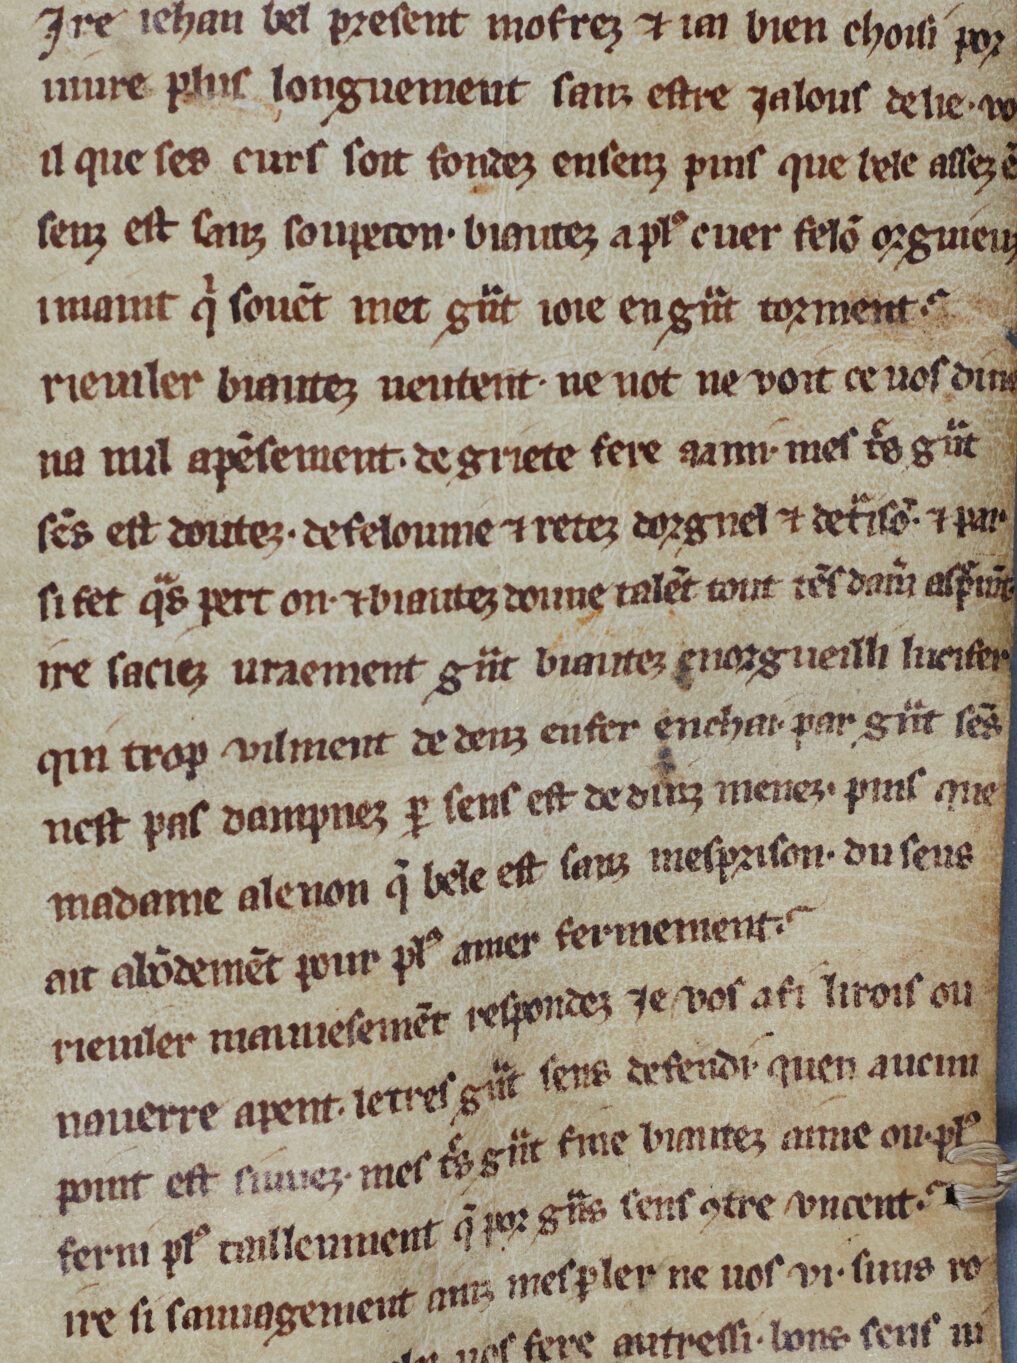 Ire iehan bel present mofrez ⁊ iai bien choisi por
uiure plus longuement sanz estre Jalous de lie· vo
il que ses curs soit fondez ensenz puis que bele assez ē
senz est sanz soupecon· biautez a plꝰ cuer felō orguieuz
maint q̇ souēt met gͣnt ioie en gͣnt torment·
rieuiler biautez neutent· ne not ne voit ce uos di
na nul apēsement· de griete fere a ami· mes t̾s gͣnt
sēs est doutez· de felounie ⁊ retez dorguel ⁊ de tͣisō· ⁊ par
si fet qͣs pert on· ⁊ biautez donne talēt tout tēs dam̄
ire saciez uraement gͣnt biautez enorgueilli lucifer
qui trop vilment de denz enfer enchai· par gͣnt sēs
nest pas dampnez ꝑ sens est de diuz menez· puis que
madame alenon q̄ bele est sanz mesprison· du sens
ait abōdemēt pour plꝰ amer fermement·
rieuiler mauuesemēt respondez Je vos afi lirois ou
nauerre apent· letres gͣnt sens defendi· quen aucun
point est siuuez· mes t̾s gͣnt fine biautez aime on· plꝰ
ferm plꝰ taillenment q̄ por gͣns sens ꝯtre vncent·
ire si sauuagement ainz mes ꝑler ne uos vi· suus ro
uos fere autressi· bons sens ni